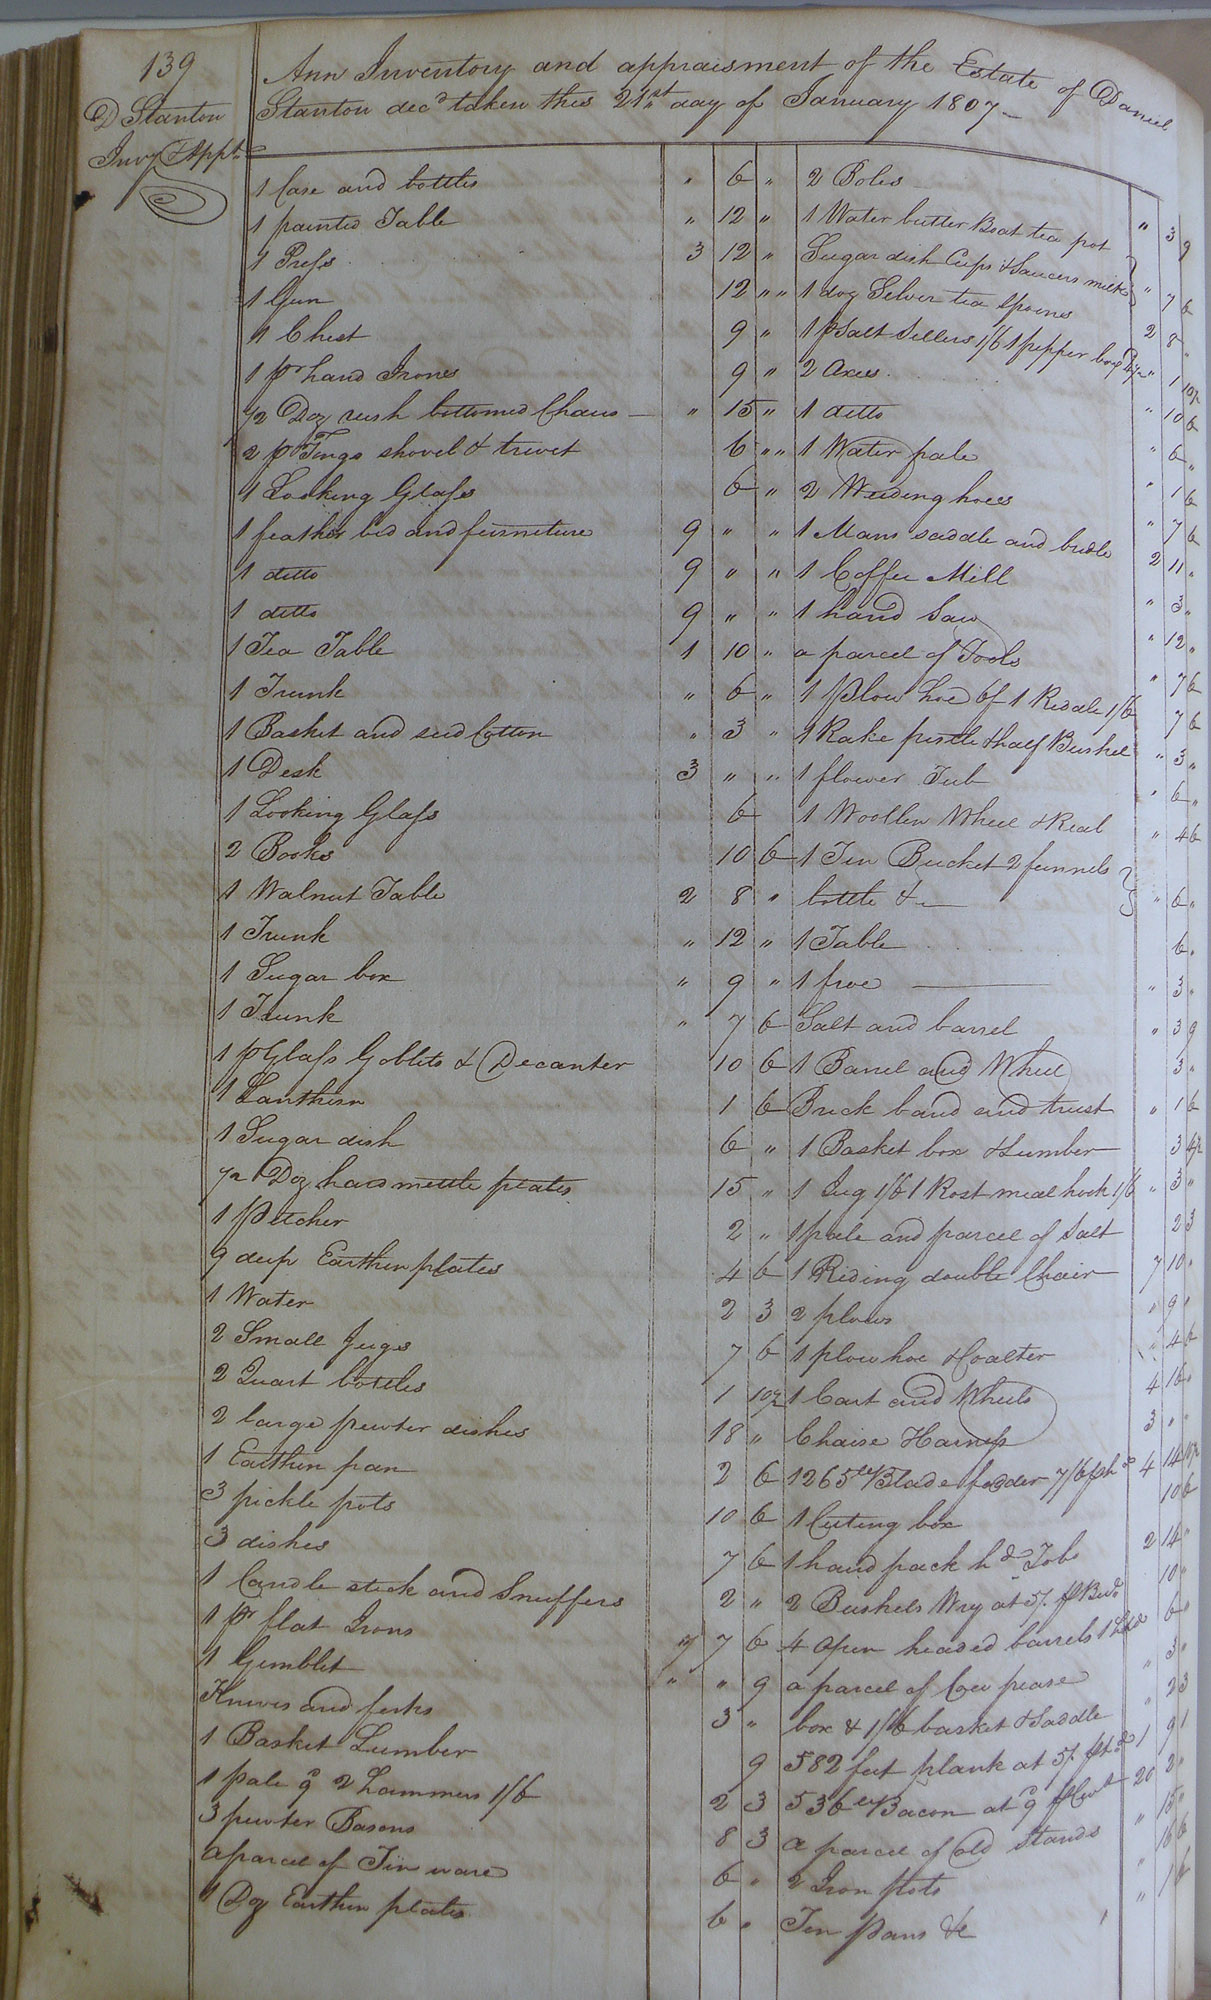 139
D Stanton
Invy & Appt
Ann Inventory and appraisment of the Estate of Daniel
Stanton decd taken this 21st day of January 1807
1 Case and bottles " 6 "
1 painted Table " 12 "
1 Press 3 12 "
1 Gun 12 "
1 Chest 9 "
1 pr hand Irons 9 "
1/2 Doz rush bottomed Chairs " 15 "
2 p Tongs shovel & trivet 6 "
1 Looking Glass 6 "
1 feather bed and furniture 9 " "
1 ditto 9 " "
1 ditto 9 " "
1 Tea Table 1 10 "
1 Trunk " 6 "
1 Basket and seed Cotton " 3 "
1 Desk 3 " "
1 Looking Glass 6
2 Books 10 6
1 Walnut Table 2 8 "
1 Trunk " 12 "
1 Sugar box " 9 "
1 Trunk " 7 6
1 p Glass Goblets & Decanter 10 6
1 Lanthern 1 6
1 Sugar dish 6 "
1/2 Doz hard mettle plates 15 "
1 Pitcher 2 "
9 deep Earthen plates 4 6
1 Water 2 3
2 Small Jugs 7 6
2 Quart bottles 1 10 1/2
2 large pewter dishes 18 "
1 Earthen pan 2 6
3 pickle pots 10 6
3 dishes 7 6
1 Candle stick and Snuffers 2 "
1 pr flat Irons 7 6
1 Gimblet " " 9
Knives and forks 3 "
1 Basket Lumber 9
1 pale 9 2 hammers 1/6 2 3
3 pewter Basons 8 3
a parcel of Tin ware 6 "
1 Doz Earthen plates 6 "
2 Boles " 3 9
1 Water butter Boat tea pot
Sugar dish Cups & Saucers milk " 7 6
1 doz Silver tea Spoons 2 8 "
1 p Salt Sellers 1/6 1 pepper box " 1 10 1/2
2 Axes " 10 6
1 ditto " 6 "
1 Water pale " 1 6
2 Weeding hoes " 7 6
1 Mans saddle and bridle 2 11 "
1 Coffee Mill " 3 "
1 hand Saw " 12 "
a parcel of Tools " 7 6
1 Plow hoe 6/ 1 Riddle 1/6 7 6
1 Rake pestle & half Bushel " 3 "
1 flower Tub " 6 "
1 Woollen Wheel & Real " 4 6
1 Tin Bucket 2 funnels
bottle &c " 6 "
1 Table 6 "
1 froe " 3 "
Salt and barrel " 3 9
1 Barrel and Wheel 3 "
Buck band and trust " 1 6
1 Basket box & Lumber 3 4 1/2
1 Jug 1/6 1 Rost meal hook 1/6 " 3 "
1 pale and parcel of Salt 2 3
1 Riding double Chair 7 10 "
2 plows " 9 "
1 plow hoe & Coalter " 4 6
1 Cart and Wheels 4 16 "
Chaise Harness 3 " "
1265 lb Blade fodder 7/6 4 14 10 1/2
1 Cuting box 10 6
1 hand pack hd Tobo 2 14 "
2 Bushels Wry at 5/ 10 "
4 open headed barrels 6 "
a parcel of Cow pease " 3 "
box & 1/6 basket & Saddle " 2 3
582 feet plank at 5/ 1 9 1
536 lb Bacon at 9 20 2 "
a parcel of old Stands " 15 "
2 Iron Pots " 16 6
Ten Pans &c " 1 6